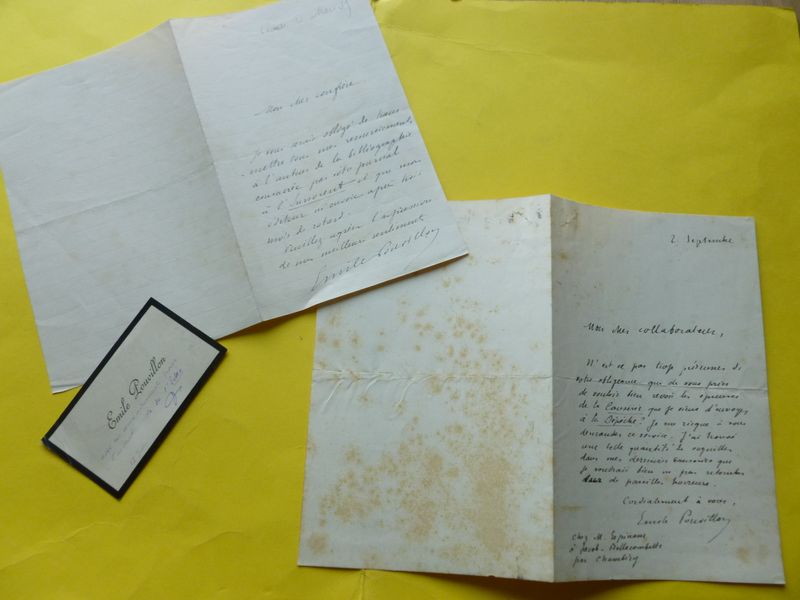 Mon cher confrère,
Je vous serais obligé de trans
-mettre tous mes remerciements
à l'auteur de la bibliographie
consacrée par votre journal
à l'Innocent et que mon
éditeur m'envoie après trois
mois de retard.
Veuillez agréer l'expression
de mes meilleurs sentiments
Emile Pouvillon
Emile Pouvillon
2 Septembre
Mon cher collaborateur,
N'est ce pas trop présumer de
votre obligeance que de vous prier
de vouloir bien revoir les épreuves
de la Causerie que je viens d'envoyer
à la Dépêche? Je me risque à vous
demander ce service. J'ai trouvé
une telle quantité de coquilles
dans mes dernières causeries que
je voudrais bien ne pas retomber
dans de pareilles horreurs.
Cordialement à vous,
Emile Pouvillon
chez M.
à Jacob-Bellecombette
par Chambéry